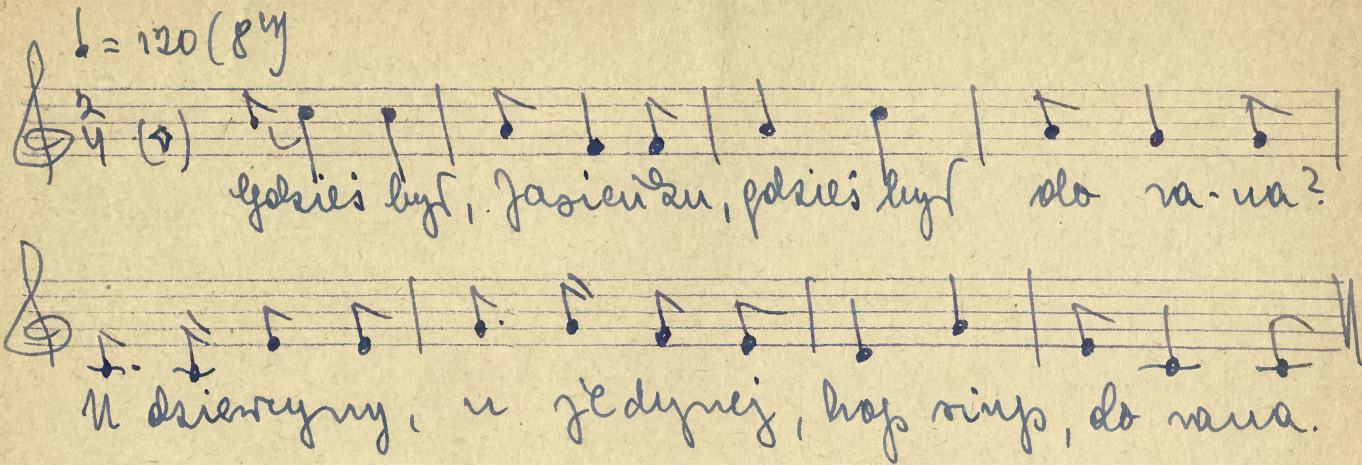 ♩ = 120 (8")
2
4
Gdzieś był, Jasieńku, gdzieś był do ra-na?
U dziewcyny, u jedynej, hop siup, do rana.